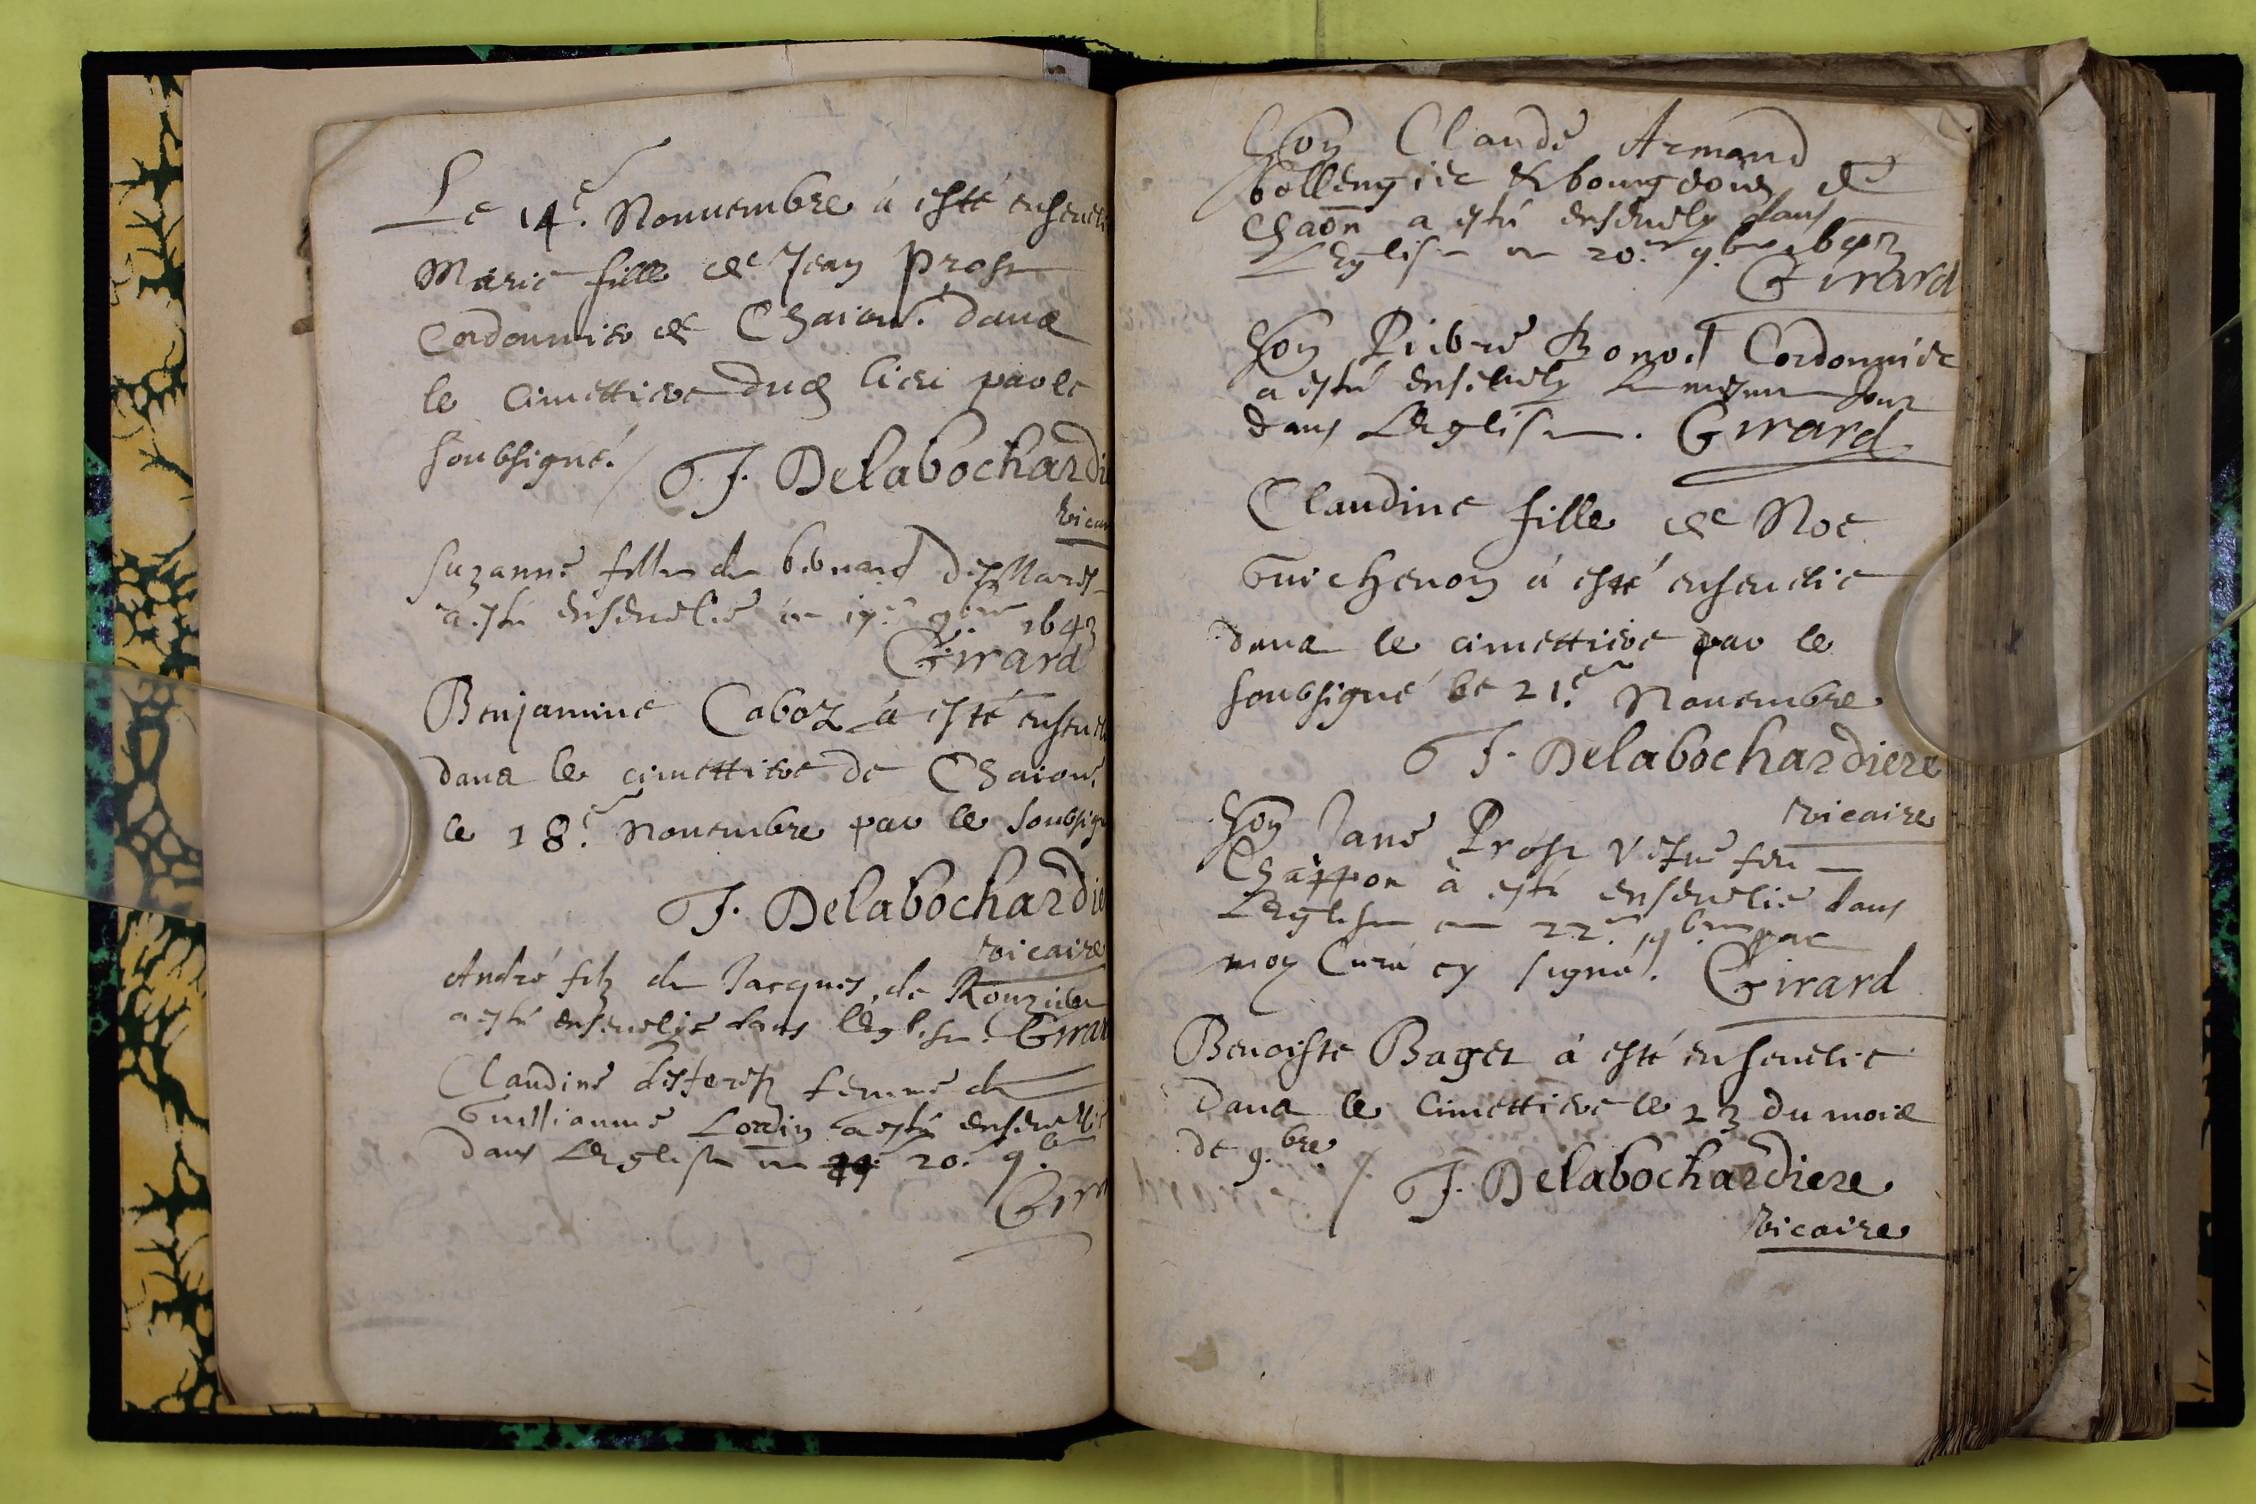 Le 14.e Nouuembre á esté enseueli
Marie fille de Jean Prost
Cordonnier de Chaion. dans
le cimettiere dud lieu par le
soubsigné. /
J. Delabochardie
vicai
Suzanne fille de bernard
a esté enseuelie le 17.e 9.bre 1643
Girard
Benjamine Caboz á esté enseueli
dans le cimettiere de Chaion.
le 18.e Nouembre par le soubsign
J. Delabochardie
vicaire
André filz de Jacques de Rouziere
a esté enseuelie dans leglise. Girar
Claudine femme de
Guilliaume Lordin a esté enseuellie
dans Leglise le 20.e 9.bre
Girar
Hon Claude Armand
bollengier & bourgeois de
Chaon a esté enseuely dans
Leglise le 20.e 9.bre 1643
Girard
Hon Pierre Bonod Cordonnier
a esté enseuely le mesme Jour
dans Leglise. Girard
Claudine fille de Noe
Guichenon á esté enseuelie
dans le cimettiere par le
soubsigné le 21.e Nouembre
J. Delabochardiere
vicaire
Hon Jane Prost vefue feu
Chappon à esté enseuelie dans
Leglise le 22.e 9.bre par
moy Curé cy signé. Girard
Benoiste Baget á esté enseuelie
dans le cimettiere le 23 du mois
de 9.bre /
J. Delabochardiere
vicaire